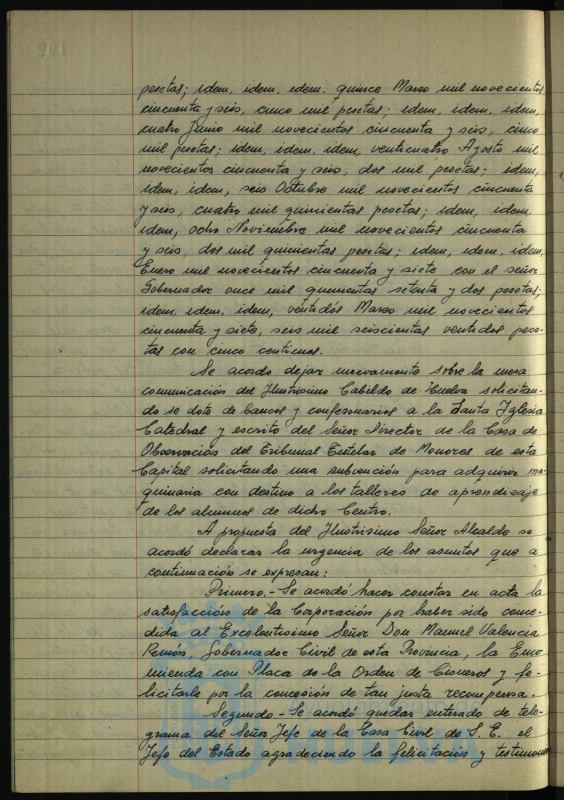 pesetas; idem, idem, idem, quince Marzo mil novecientos
cincuenta y seis, cinco mil pesetas; idem, idem, idem,
cuatro Junio mil novecientos cincuenta y seis, cinco
mil pesetas; idem, idem, idem, venticuatro Agosto mil
novecientos cincuenta y seis, dos mil pesetas; idem,
idem, idem, seis Octubre mil novecientos cincuenta
y seis, cuatro mil quinientas pesetas; idem, idem,
idem, ocho Noviembre mil novecientos cincuenta
y seis, dos mil quinientas pesetas; idem, idem, idem,
Enero mil novecientos cincuenta y siete con el señor
Gobernador once mil quinientas setenta y dos pesetas;
idem, idem, idem, ventidós Marzo mil novecientos
cincuenta y siete, seis mil seiscientas ventidos pese-
tas con cinco centimos.
Se acordo dejar nuevamente sobre la mesa
comunicación del Ilustrisimo Cabildo de Huelva solicitan-
do se dote de bancos y confesonarios a la Santa Iglesia
Catedral y escrito del Señor Director de la Casa de
Observación del Tribunal Tutelar de Menores de esta
Capital solicitando una subvención para adquirir ma-
quinaria con destino a los talleres de aprendizaje
de los alumnos de dicho Centro.
A propuesta del Ilustrisimo Señor Alcalde se
acordó declarar la urgencia de los asuntos que a
continuación se expresan:
Primero.- Se acordó hacer constar en acta la
satisfacción de la Corporación por haber sido conce-
dida al Excelentisimo Señor Don Manuel Valencia
Remón, Gobernador Civil de esta Provincia, la Enco
mienda con Placa de la Orden de Cisneros y fe-
licitarle por la concesión de tan justa recompensa.
Segundo.- Se acordó quedar enterado de tele-
grama del Señor Jefe de la Casa Civil de S. E. el
Jefe del Estado agradeciendo la felicitación y testimonio